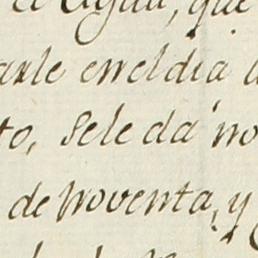 el Agua, que
arle en el dia
to, se le da no
de Noventa, y